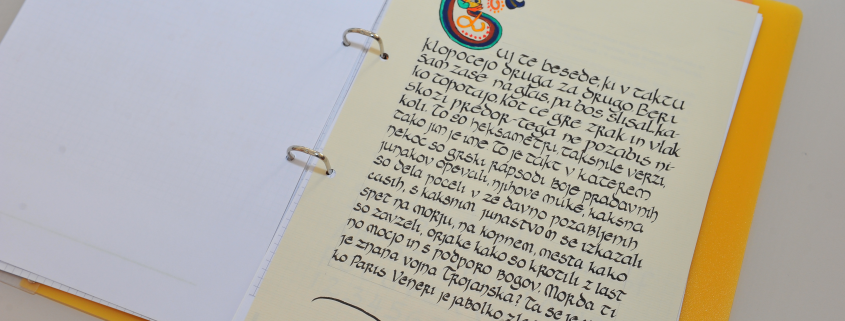 Čuj te besede, ki v taktu
klopočejo druga za drugo. Beri
sam zase na glas, pa boš slišal, ka-
ko topotajo, kot če gre zrak in vlak
skozi predor - tega ne pozabiš ni-
koli. To so heksametri, takšnile verzi,
tako jim je ime. To je takt v katerem
nekoč so grški rapsodi boje pradavnih
junakov opevali, njihove muke, kakšna
so dela počeli v že davno pozabljenih
časih, s kakšnim junaštvom se izkazali
spet na morju, na kopnem, mesta kako
so zavzeli, orjake kako so krotili z last
no močjo in s podporo bogov. Morda ti
je znana vojna Trojanska? Ta se je
ko Paris Veneri je jabolko